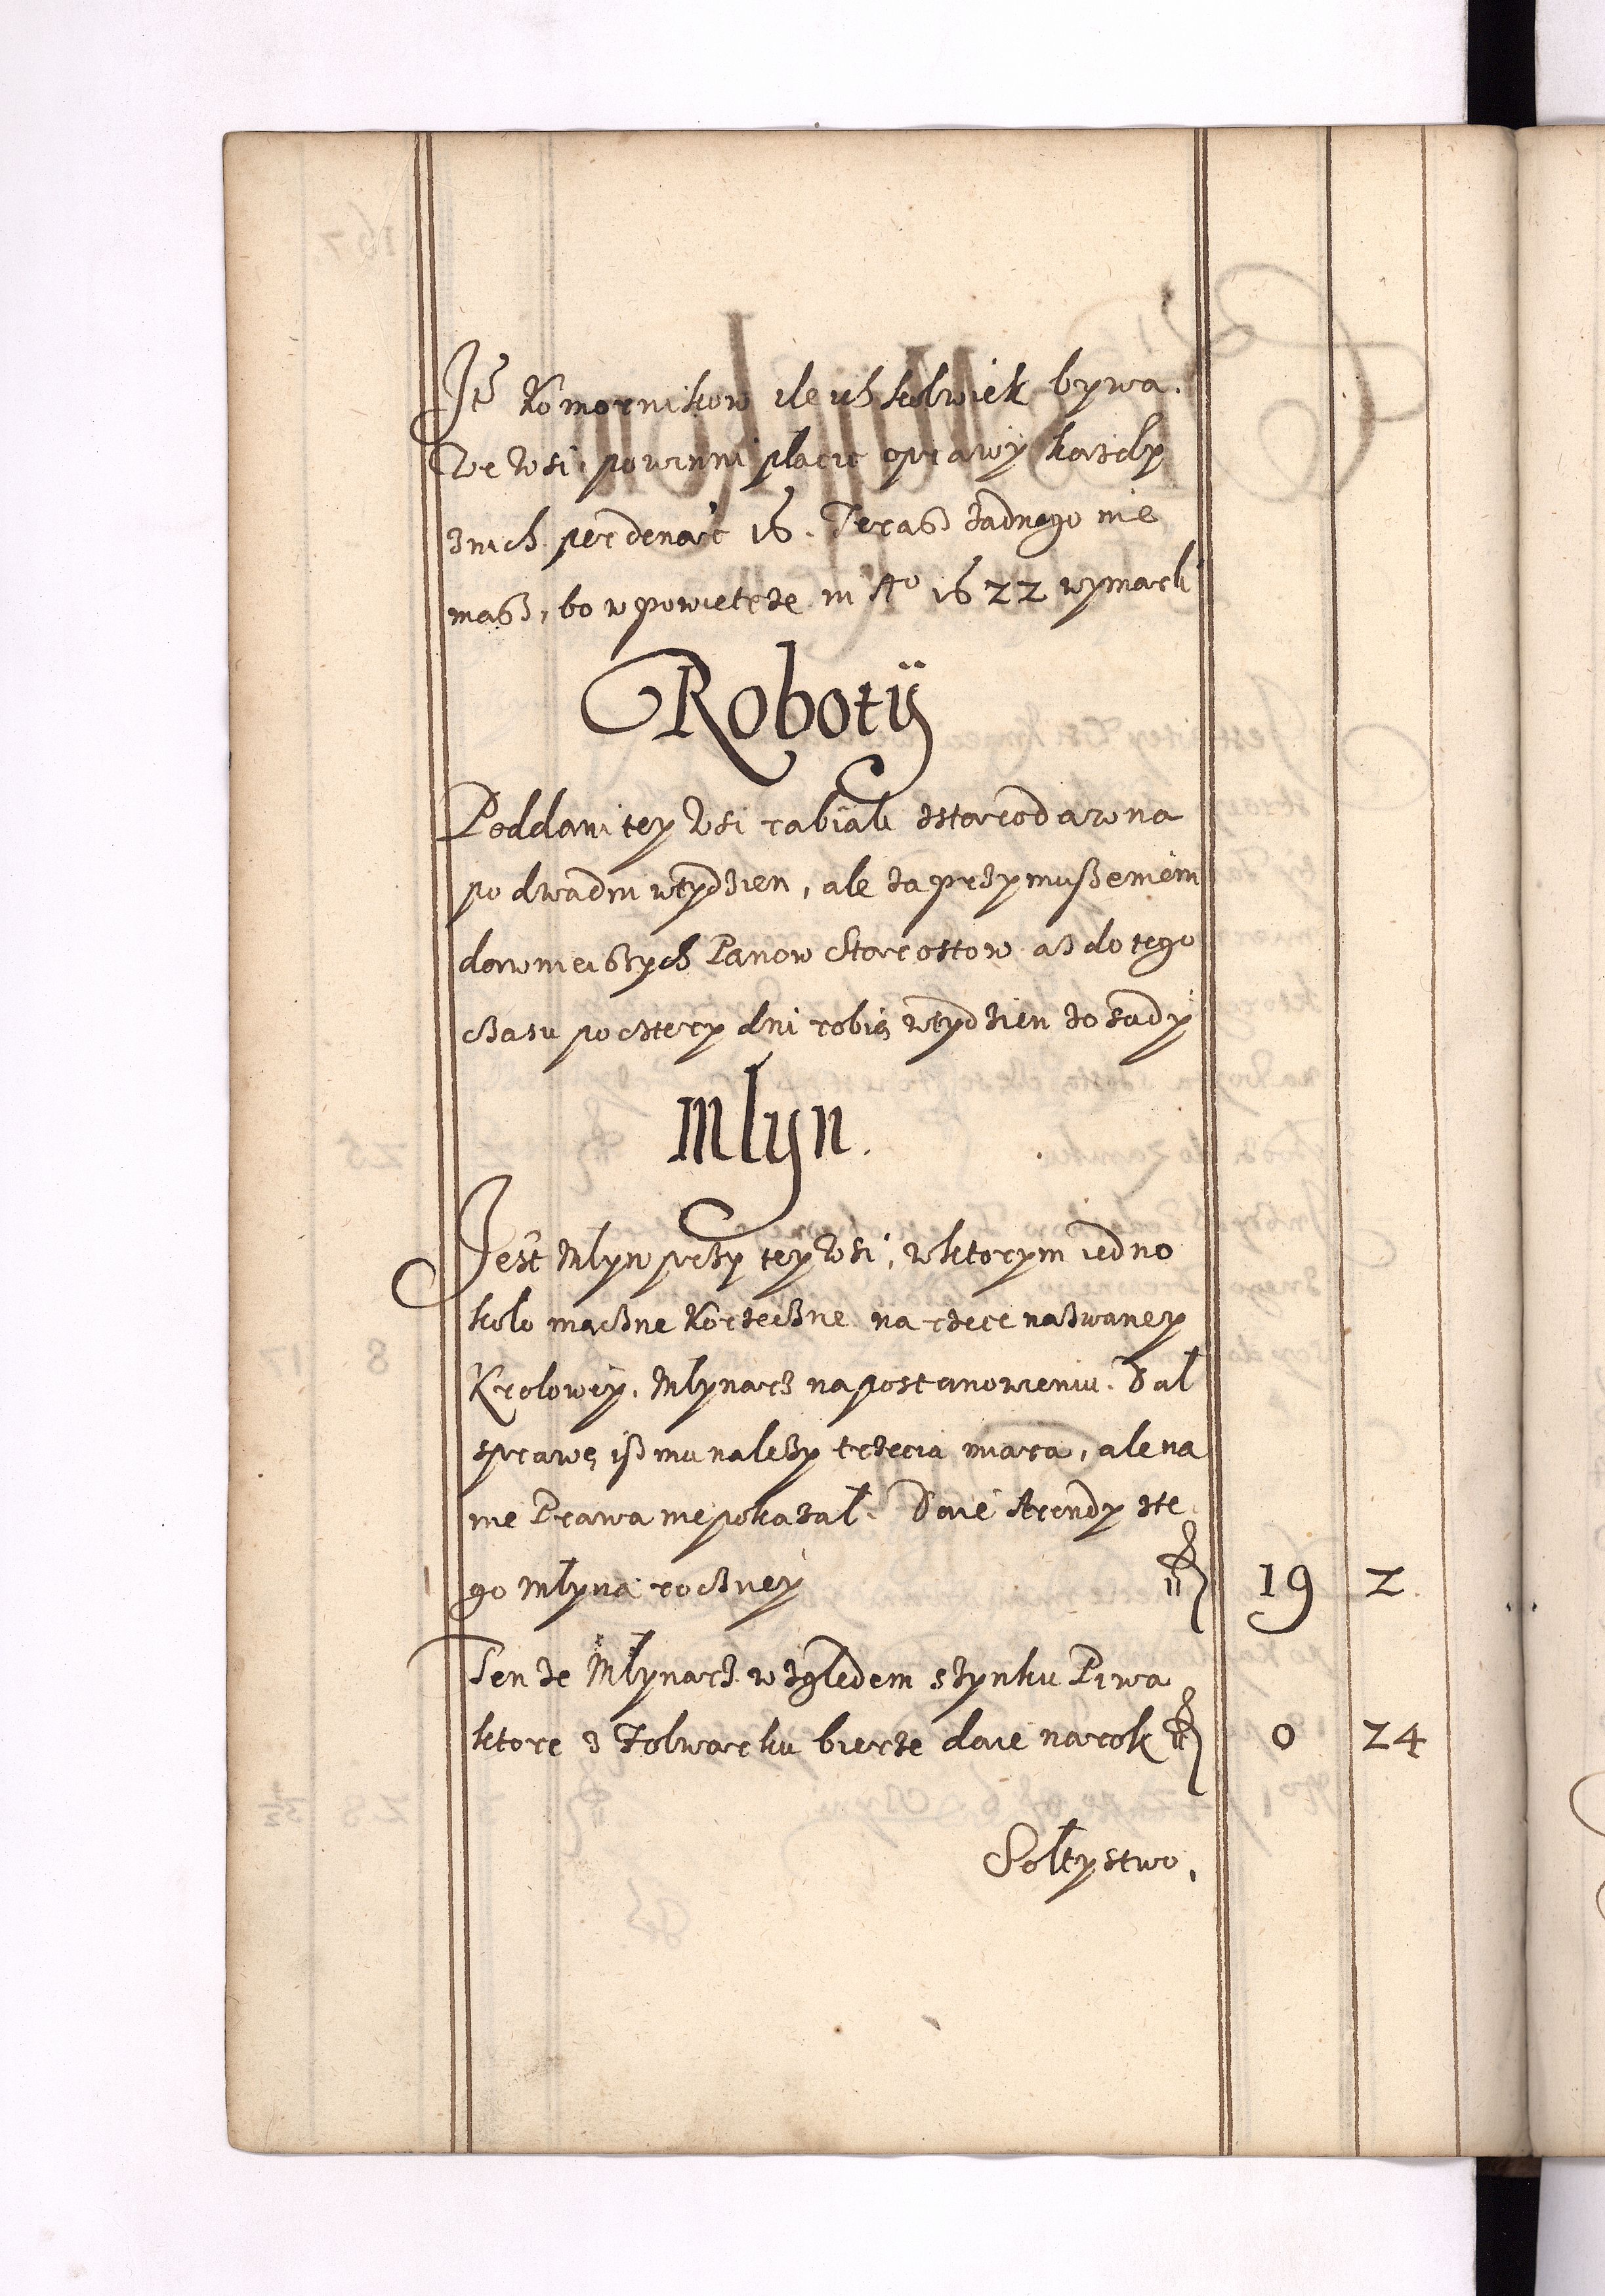 Ite Komornikow ile ich kolwiek bywa.
We Wsi, powinni płacic oprawy kazdy
z nich per denar 16. Terasz zadnego nie
masz, bo w powietrze in Aº 1622 wymarli
Roboty
Poddani tey Wsi rabiali z starodawna
po dwa dni w tydzien, ale za przymuszeniem
dawnieiszych Panow Starostow asz do tego
czasu po cztery dni robią w tydzien zosady
Mlyn.
Jest Mlyn przy tey Wsi, w ktorym iedno
kolo maczne Korzeczne na rzece nazwaney
Krolowy. Mlynarz na postanowieniu. Dal
sprawę isz mu nalezy trzecia miara, ale na
nie Prawa nie pokazal. Daie Arendy z te
go Mlyna roczney 19 2
Ten ze Mlynarz wzgledem szynku Piwa
ktore z Folwarku bierze daie na rok 0 24
Soltystwo.